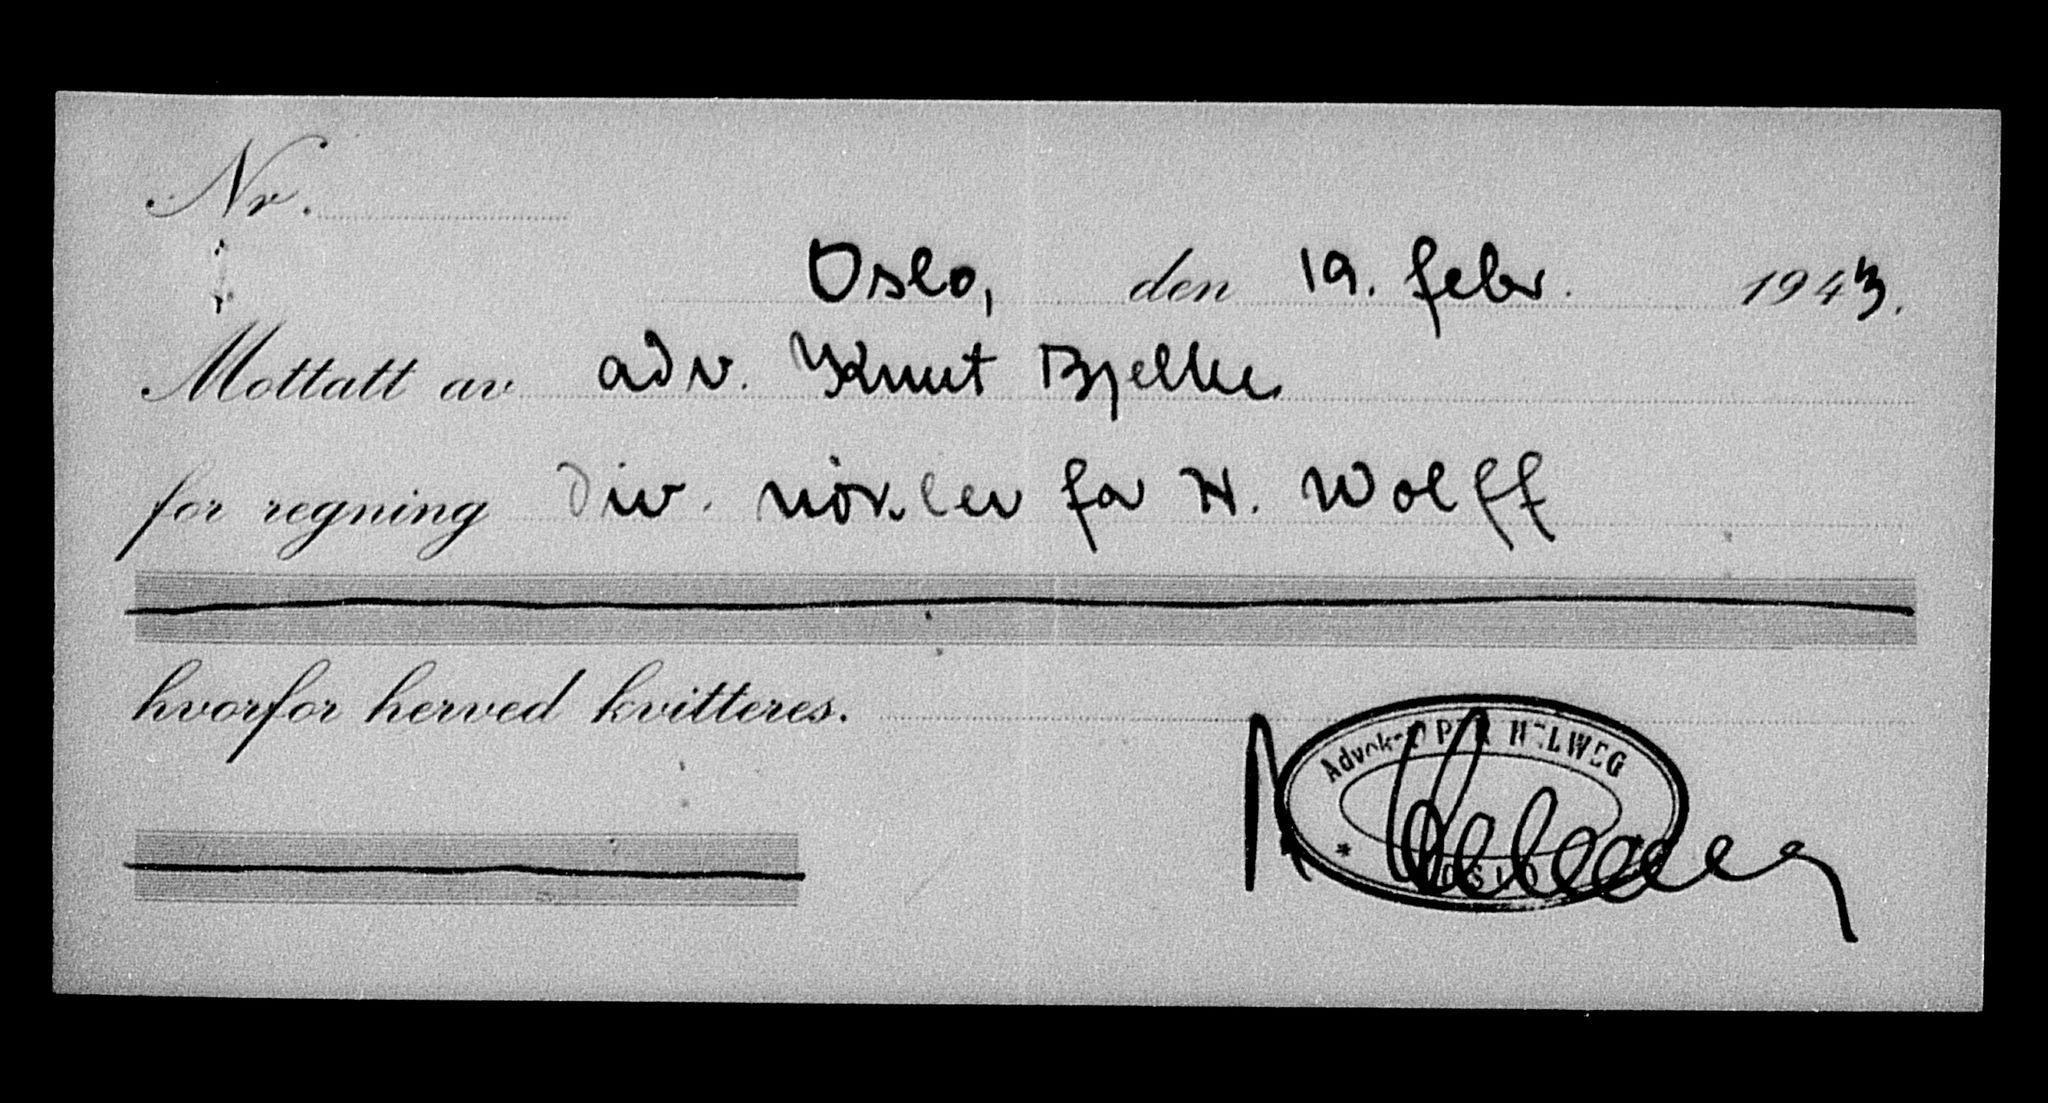 Nr.
Oslo, den 19. febr. 1943.
Mottatt av adv. Knut Bjelke
for regning div. nökler fa H. Wolff
hvorfor herved kvitteres.
Advokat PER HELWEG
OSLO